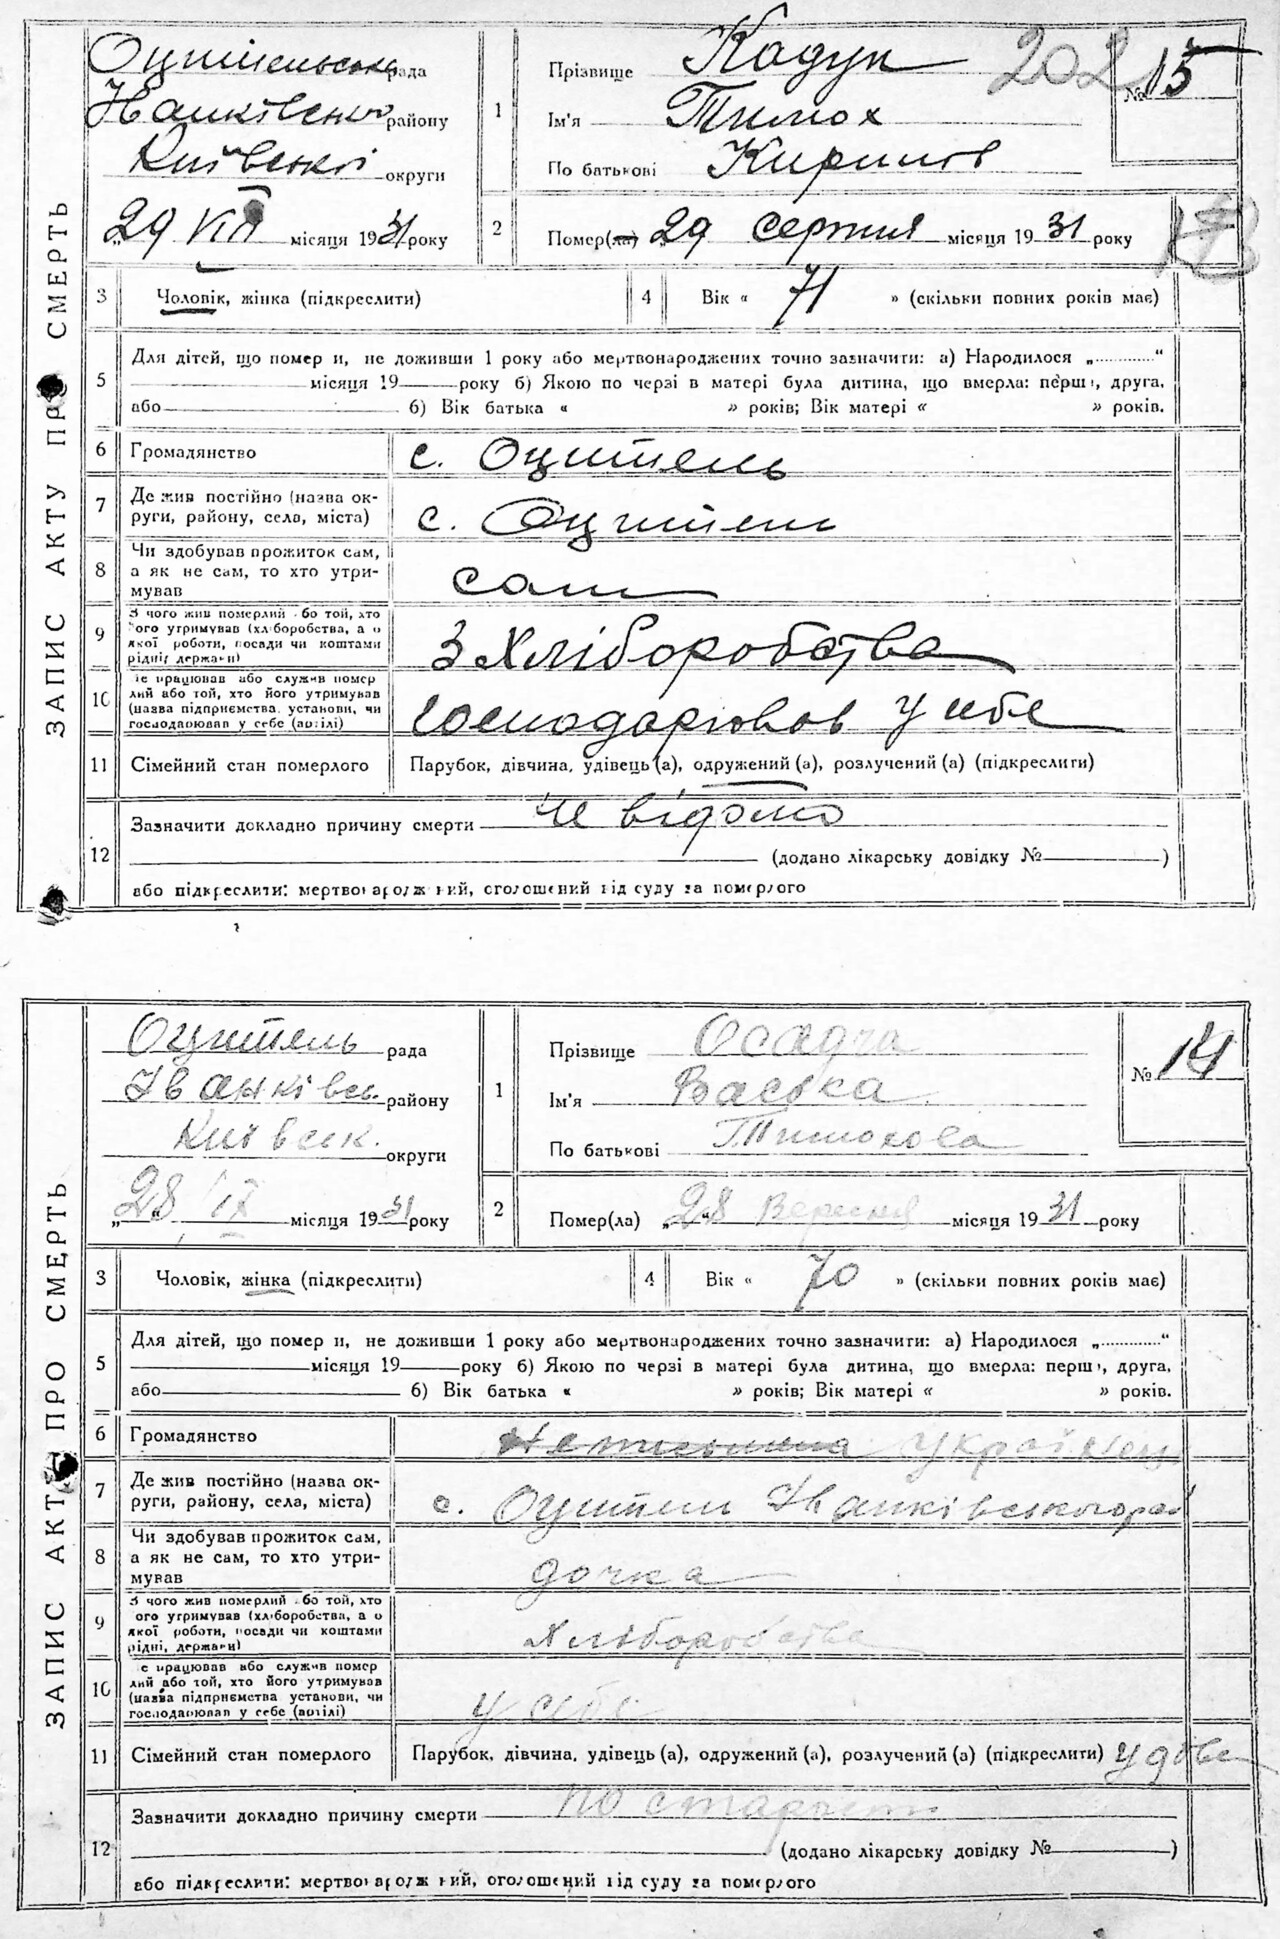 ЗАПИС АКТУ ПРО СМЕРТЬ
Оцительська рада
Іванківсько району
Київські округи
„29 VIII місяця 1931 року
1
Прізвище Кадук
Ім'я Тимох
По батькові Кирилов
202
№ 15
2
Помер(ла) 29 серпня місяця 1931 року
3
Чоловік, жінка (підкреслити)
4
Вік « 71 » (скільки повних років має)
5
Для дітей, що помер и, не доживши 1 року або мертвонароджених точно зазначити: а) Народилося „ “
місяця 19 року б) Якою по черзі в матері була дитина, що вмерла: перша, друга,
або б) Вік батька « » років; Вік матері « » років.
6
Громадянство с. Оцитель
7
Де жив постійно (назва ок-
руги, району, села, міста) с. Оцители
8
Чи здобував прожиток сам,
а як не сам, то хто утри-
мував сам
9
З чого жив померлий або той, хто
його утримував (хліборобства, а о
якої роботи, посади чи коштами
рідні, держави) З Хліборобства
10
де працював або служив помер
лий або той, хто його утримував
(назва підприємства установи, чи
господарював у себе (вдома)) господарював у себе
11
Сімейний стан померлого
Парубок, дівчина, удівець (а), одружений (а), розлучений (а) (підкреслити)
12
Зазначити докладно причину смерти не відомо
(додано лікарську довідку № )
або підкреслити: мертвонароджений, оголошений від суду за померлого
ЗАПИС АКТУ ПРО СМЕРТЬ
Оцитель рада
Іванківсь. району
Київськ. округи
„28“ IX місяця 1931 року
1
Прізвище Осадча
Ім'я Васька
По батькові Тимохова
№ 14
2
Помер(ла) „28“ Вересня місяця 1931 року
3
Чоловік, жінка (підкреслити)
4
Вік « 70 » (скільки повних років має)
5
Для дітей, що помер и, не доживши 1 року або мертвонароджених точно зазначити: а) Народилося „ “
місяця 19 року б) Якою по черзі в матері була дитина, що вмерла: перша, друга,
або б) Вік батька « » років; Вік матері « » років.
6
Громадянство Неписьмена Українец
7
Де жив постійно (назва ок-
руги, району, села, міста) с. Оцители Іванківського рай
8
Чи здобував прожиток сам,
а як не сам, то хто утри-
мував дочка
9
З чого жив померлий або той, хто
його утримував (хліборобства, а о
якої роботи, посади чи коштами
рідні, держави) Хліборобства
10
де працював або служив помер
лий або той, хто його утримував
(назва підприємства установи, чи
господарював у себе (вдома)) у себе
11
Сімейний стан померлого
Парубок, дівчина, удівець (а), одружений (а), розлучений (а) (підкреслити) удове
12
Зазначити докладно причину смерти по старости
(додано лікарську довідку № )
або підкреслити: мертвонароджений, оголошений від суду за померлого